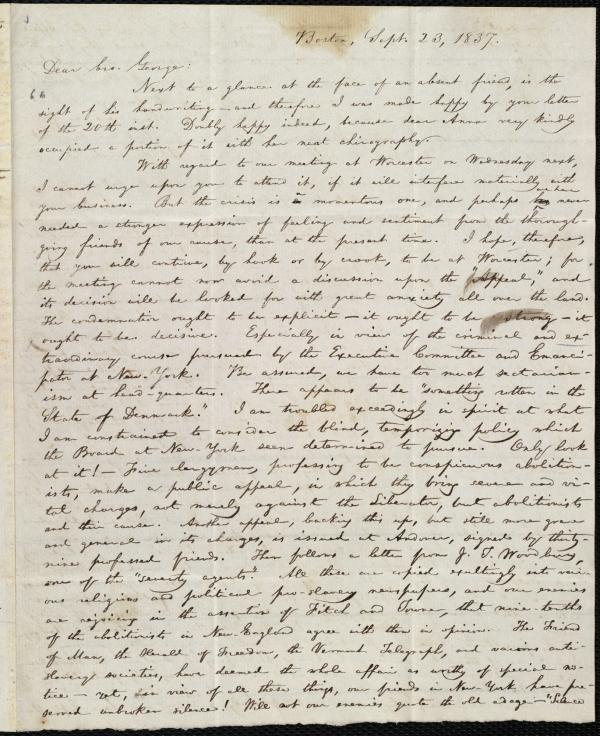 Boston, Sept. 23, 1837.
Dear bro. George:
Next to a glance at the face of an absent friend, is the
sight of his handwriting—and therefore I was made happy by your letter
of the 20th inst. Doubly happy indeed, because dear Anna very kindly
occupied a portion of it with her neat chirography.
With regard to our meeting at Worcester on Wednesday next,
I cannot urge upon you to attend it, if it will interfere materially with
your business. But the crisis is a momentous one, and perhaps we have never
needed a stronger expression of feeling and sentiment from the thorough-
going friends of our cause, than at the present time. I hope, therefore,
that you will contrive, by hook or by crook, to be at Worcester; for
the meeting cannot now avoid a discussion upon the "Appeal," and
its decision will be looked for with great anxiety all over the land.
The condemnation ought to be explicit—it ought to be strong—it
ought to be decisive. Especially in view of the criminal and ex-
traordinary course pursued by the Executive Committee and Emanci-
pator at New-York. Be assured, we have too much sectarian-
ism at head-quarters. There appears to be "something rotten in the
State of Denmark." I am troubled exceedingly in spirit at what
I am constrained to consider the blind, temporizing policy which
the Board at New-York seem determined to pursue. Only look
at it!—Five clergymen, professing to be conspicuous abolition-
ists, make a public appeal, in which they bring severe and vi-
tal charges, not merely against the Liberator, but abolitionists
and their cause. Another appeal, backing this up, but still more grave
and general in its charges, is issued at Andover, signed by thirty-
nine professed friends. Then follows a letter from J. T. Woodbury,
one of the "seventy agents." All these are copied exultingly into vari-
ous religious and political pro-slavery newspapers, and our enemies
are rejoicing in the assertion of Fitch and Towne, that nine-tenths
of the abolitionists in New-England agree with them in opinion. The Friend
of Man, the Herald of Freedom, the Vermont Telegraph, and various anti-
slavery societies, have deemed the whole affair as worthy of special no-
tice—yet, in view of all these things, our friends in New-York have pre-
served unbroken silence! Will not our enemies quote the old adage—"Silence